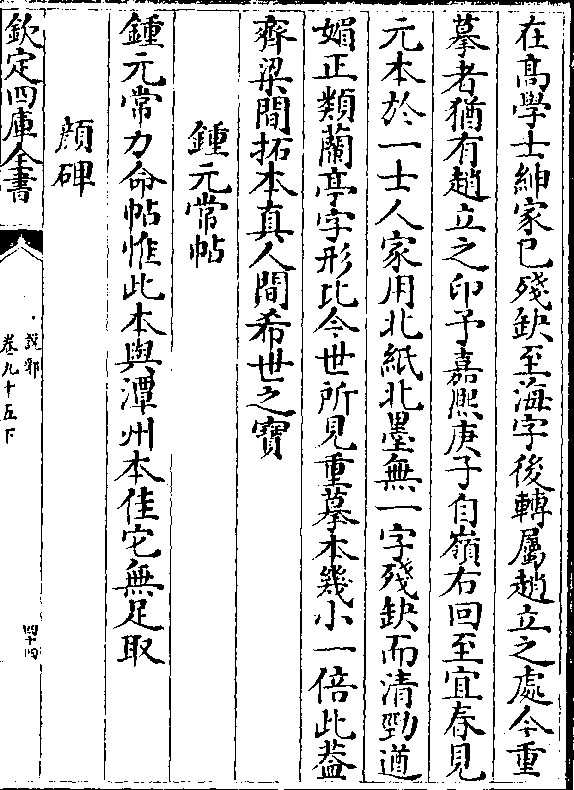 在髙學士紳家已殘缺至海字後轉屬趙立之處今重
摹者猶有趙立之印予嘉熙庚子自嶺右回至宜春見
元本於一士人家用北紙北墨無一字殘缺而清勁遒
媚正類蘭亭字形比今世所見重摹本幾小一倍此葢
齊梁間拓本真人間希世之寶
鍾元常帖
鍾元常力命帖惟此本與潭州本佳它無足取
顔碑
欽定四庫全書
說郛
卷九十五下
四十四